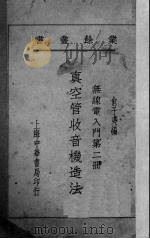 業餘叢書
俞子夷編
無線電入門第二冊
真空管收音機造法
上海中華書局印行